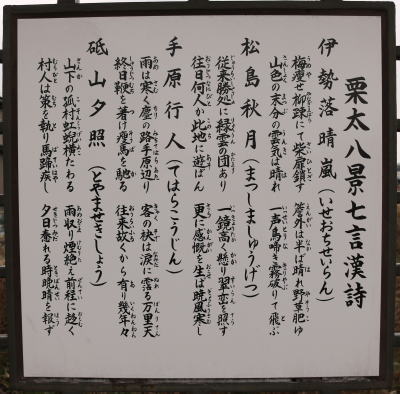 栗太八景七言漢詩
伊勢落晴嵐(いせおちせいらん)
梅痩せ柳踈にて柴扉鎖す 簷外は半ば晴れ野草肥ゆ
山色の末分の雲気は晴れ 一声鳥啼き霧破りて飛ぶ
松島秋月(まつしましゅうげつ)
従来勝処に緑雲の団あり 一鏡高く懸り翠巒を照す
往日何人か此地に遊ばん 更に感慨を生ば暁風寒し
手原行人(てはらこうじん)
雨は寒く塵の路手原辺り 客の袂は涙に霑る万里天
終日鞭を着け痩馬を馳る 往来故くから有り幾年々
砥山夕照(とやませきしょう)
山下の孤村虹蜺横たわる 雨収り煙絶え前径に趁く
村人は策を執り馬蹄疾し 夕日舂れる時晩晴を報ず